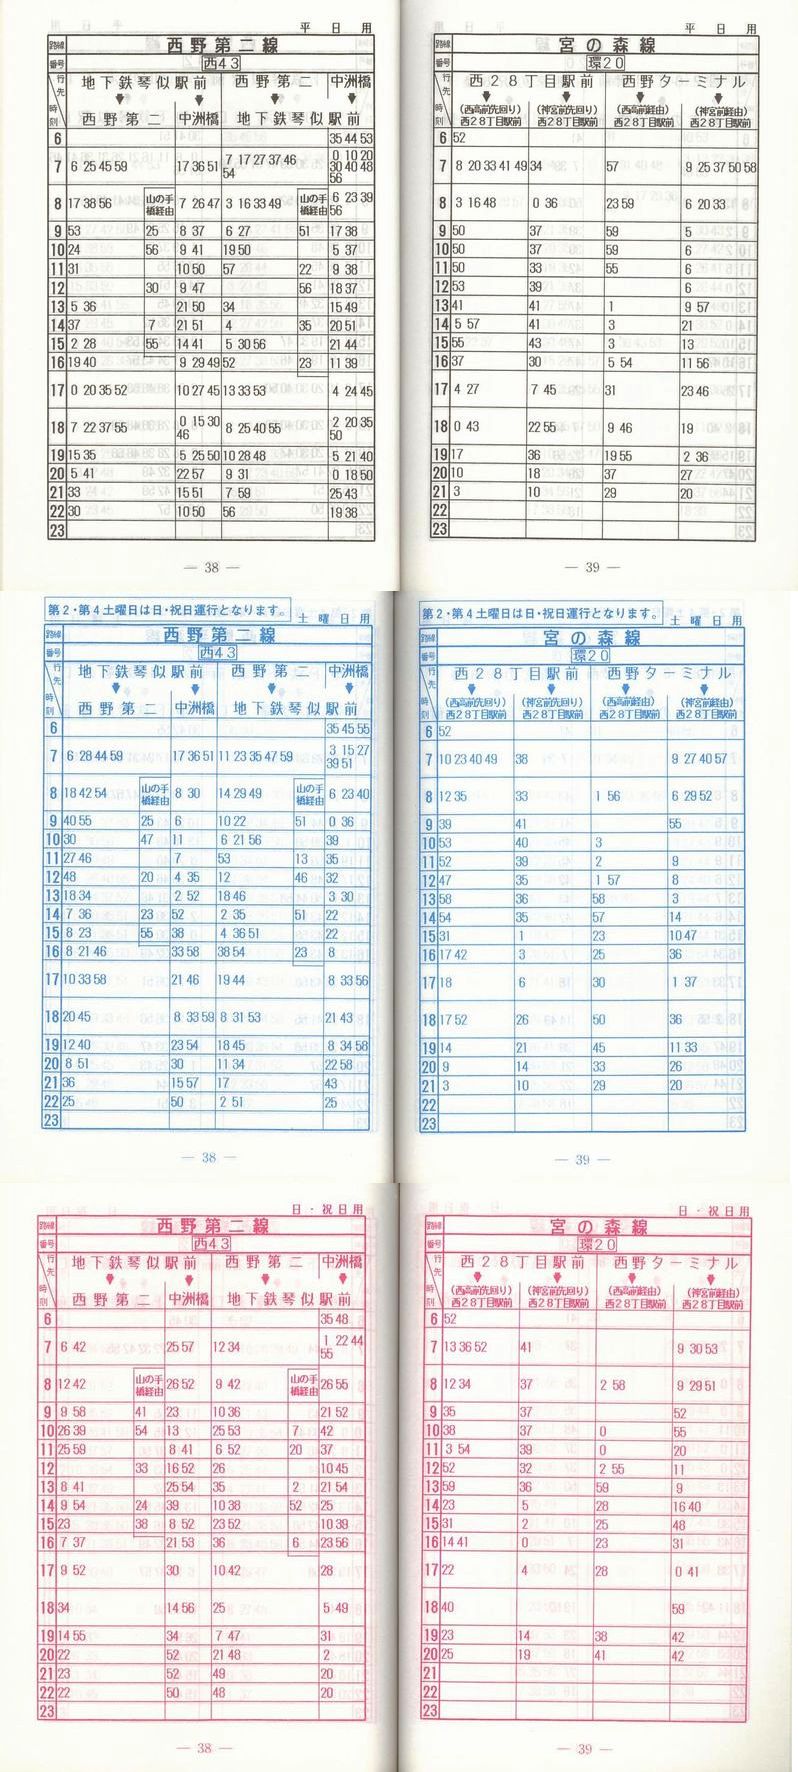 平日用
路線 西野第二線
番号 西43
行先 地下鉄琴似駅前 西野第二 中洲橋
時刻 西野第二 中洲橋 地下鉄琴似駅前
6 35 44 53
7 6 25 45 59 17 36 51 7 17 27 37 46 54 0 10 20 30 40 48 56
8 17 38 56 山の手橋経由 7 26 47 3 16 33 49 山の手橋経由 6 23 39 56
9 53 25 8 37 6 27 51 17 38
10 24 56 9 41 19 50 5 37
11 31 10 50 57 22 9 38
12 30 9 47 56 18 37
13 5 36 21 50 34 15 49
14 37 7 21 51 4 35 20 51
15 2 28 55 14 41 5 30 56 17 47
16 19 40 9 29 49 52 23 11 39
17 0 20 35 52 10 27 45 13 33 53 4 24 45
18 7 22 37 55 0 15 30 46 8 25 40 55 2 20 35 50
19 15 35 5 25 50 10 28 48 5 21 40
20 5 41 22 57 9 31 0 18 50
21 33 15 51 7 59 25 43
22 30 10 50 56 19 38
23
― 38 ―
平日用
路線 宮の森線
番号 環20
行先 西28丁目駅前 西野ターミナル
時刻 (西高前先回り) 西28丁目駅前 (神宮前先回り) 西28丁目駅前 (西高前経由) 西28丁目駅前 (神宮前経由) 西28丁目駅前
6 52
7 8 20 33 41 49 34 57 9 25 37 50 58
8 3 16 48 0 36 23 59 6 20 33
9 50 37 59 5
10 50 37 59 6
11 50 33 55 6
12 53 39 6
13 41 41 1 9 57
14 5 57 41 3 21
15 55 43 3 13
16 37 30 5 54 11 56
17 4 27 7 45 31 23 46
18 0 43 22 55 9 46 19
19 17 36 19 55 2 36
20 10 18 37 27
21 3 10 29 20
22
23
― 39 ―
第2・第4土曜日は日・祝日運行となります。
土曜日用
路線 西野第二線
番号 西43
行先 地下鉄琴似駅前 西野第二 中洲橋
時刻 西野第二 中洲橋 地下鉄琴似駅前
6 35 45 55
7 6 28 44 59 17 36 51 11 23 35 47 59 3 15 27 39 51
8 18 42 54 山の手橋経由 8 30 14 29 49 山の手橋経由 6 23 40
9 40 55 25 6 10 22 51 0 36
10 30 47 11 6 21 56 39
11 27 46 7 53 13 35
12 48 20 4 35 12 46 32
13 18 34 2 52 18 46 3 30
14 7 36 23 52 2 35 51 22
15 8 23 55 38 4 36 51 22
16 8 21 46 33 58 38 54 23 8
17 10 33 58 21 46 19 44 8 33 56
18 20 45 8 33 59 8 31 53 21 43
19 12 40 23 54 18 45 8 34 58
20 8 51 30 11 34 22 58
21 36 15 57 17 43
22 25 50 2 51 25
23
― 38 ―
第2・第4土曜日は日・祝日運行となります。
土曜日用
路線 宮の森線
番号 環20
行先 西28丁目駅前 西野ターミナル
時刻 (西高前先回り) 西28丁目駅前 (神宮前先回り) 西28丁目駅前 (西高前経由) 西28丁目駅前 (神宮前経由) 西28丁目駅前
6 52
7 10 23 40 49 38 9 27 40 57
8 12 35 33 1 56 6 29 52
9 39 41 55
10 53 40 3
11 52 39 2 9
12 47 35 1 57 8
13 58 36 58 3
14 54 35 57 14
15 31 1 23 10 47
16 17 42 3 25 36
17 18 6 30 1 37
18 17 52 26 50 36
19 14 21 45 11 33
20 9 14 33 26
21 3 10 29 20
22
23
― 39 ―
日・祝日用
路線 西野第二線
番号 西43
行先 地下鉄琴似駅前 西野第二 中洲橋
時刻 西野第二 中洲橋 地下鉄琴似駅前
6 35 48
7 6 42 25 57 12 34 1 22 44 55
8 12 42 山の手橋経由 26 52 9 42 山の手橋経由 26 55
9 9 58 41 23 10 36 21 52
10 26 39 54 13 25 53 7 42
11 25 59 8 41 6 52 20 37
12 33 16 52 26 10 45
13 8 41 25 54 35 2 21 54
14 9 54 24 39 10 38 52 25
15 23 38 8 52 23 52 10 39
16 7 37 21 53 36 6 23 56
17 9 52 30 10 42 28
18 34 14 56 25 5 49
19 14 55 34 7 47 31
20 22 52 21 48 2
21 23 52 49 20
22 22 50 48 20
23
― 38 ―
日・祝日用
路線 宮の森線
番号 環20
行先 西28丁目駅前 西野ターミナル
時刻 (西高前先回り) 西28丁目駅前 (神宮前先回り) 西28丁目駅前 (西高前経由) 西28丁目駅前 (神宮前経由) 西28丁目駅前
6 52
7 13 36 52 41 9 30 53
8 12 34 37 2 58 9 29 51
9 35 37 52
10 38 37 0 55
11 3 54 39 0 20
12 52 32 2 55 11
13 59 36 59 9
14 23 5 28 16 40
15 31 2 25 48
16 14 41 0 23 31
17 22 4 28 0 41
18 40 59
19 23 14 38 42
20 25 19 41 42
21
22
23
― 39 ―